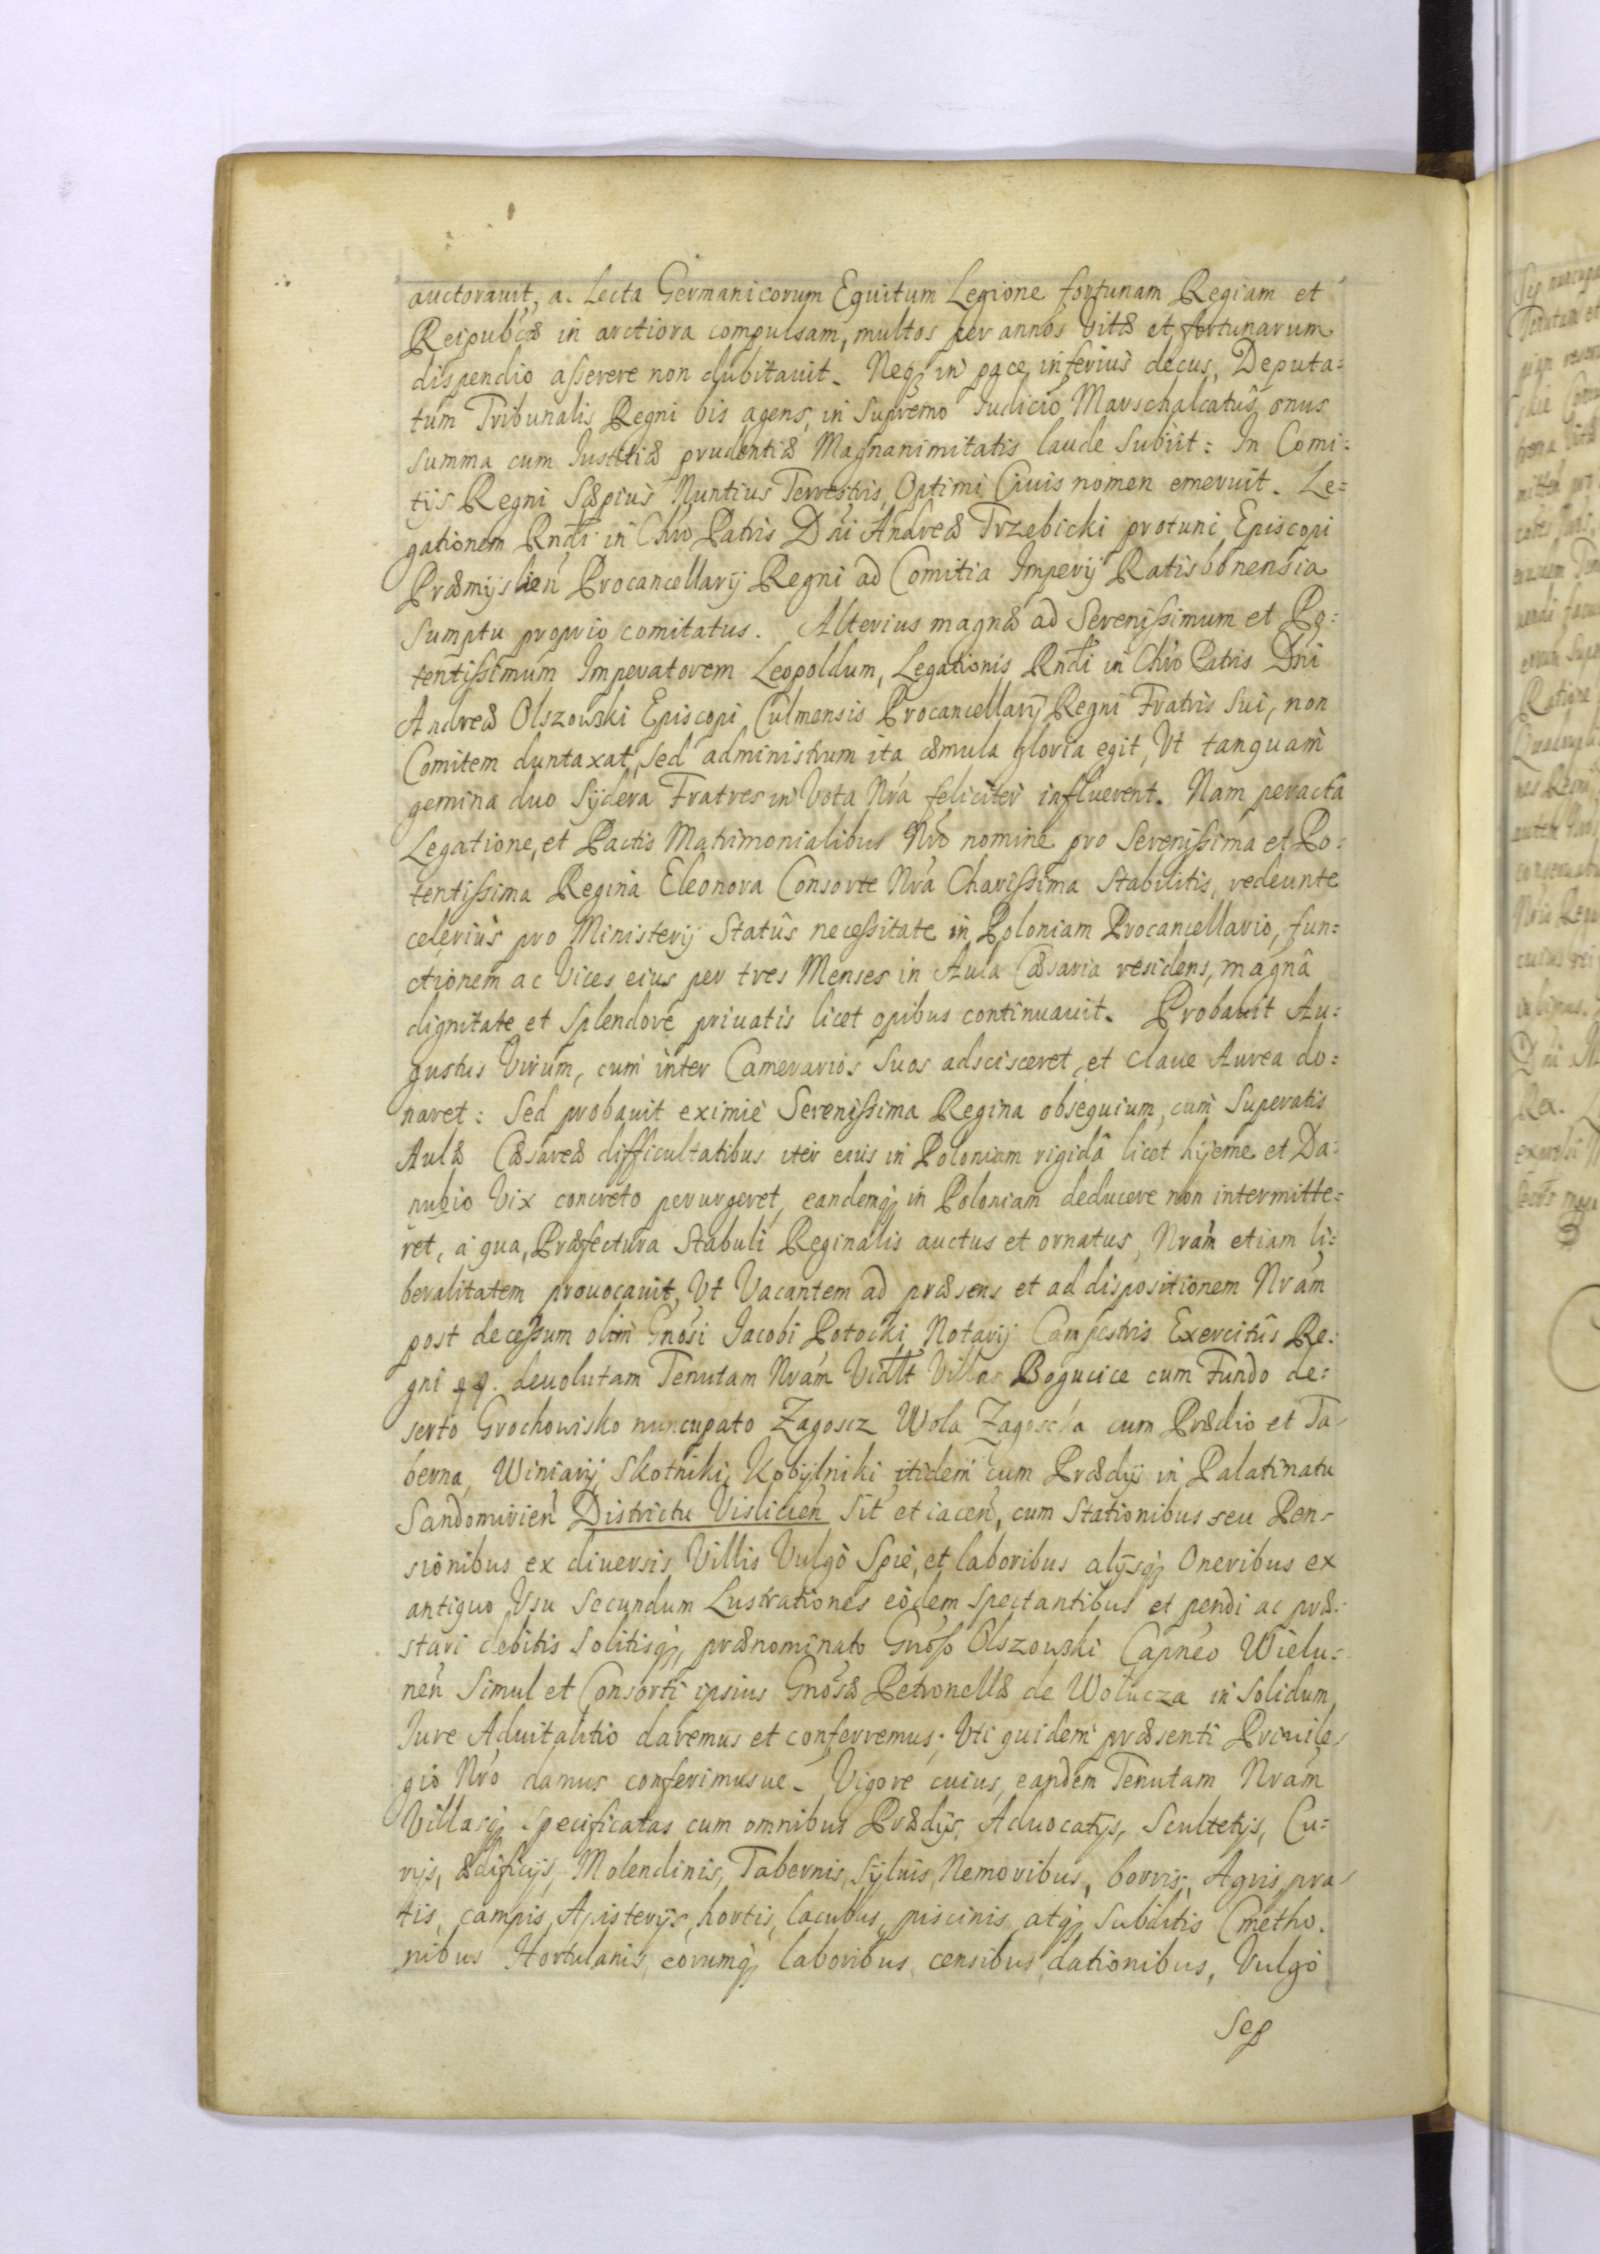 auctorauit, a. Lecta Germanicorum Equitum Legione fortunam Regiam et
Reipubcæ in arctiora compulsam, multos per annos vitæ et fortunarum
dispendio asserere non dubitauit. Neqz in pace inferius decus, Deputa=
tum Tribunalis Regni bis agens, in Supremo Iudicio Marschalcatûs onus
summa cum Iustitiæ prudentiæ Magnanimitatis laude Subiit: In Comi=
tijs Regni Sæpius Nuntius Terrestris, Optimi Ciuis nomen emeruit. Le=
gationem Rndi in Chro Patris Dni Andreæ Trzebicki protunc Episcopi
Præmyslien Procancellarij Regni ad Comitia Imperij Ratisbonensia
Sumptu proprio comitatus. Alterius magnæ ad Serenissimum et Po=
tentissimum Imperatorem Leopoldum, Legationis Rndi in Chro Patris Dni
Andreæ Olszowski Episcopi Culmensis Procancellarij Regni Fratris Sui, non
Comitem duntaxat, Sed administrum ita æmula gloria egit, Vt tanquam
gemina duo Sydera Fratres in Vota Nra feliciter influerent. Nam peracta
Legatione, et Pactis Matrimonialibus Nro nomine pro Serenissima et Po=
tentissima Regina Eleonora Consorte Nra Charissima Stabilitis, redeunte
celerius pro Ministerij Statûs necessitate in Poloniam Procancellario, fun=
ctionem ac Vices eius per tres Menses in Aula Cæsaria residens, magnâ
dignitate et Splendore priuatis licet opibus continuauit. Probauit Au=
gustus Virum, cum inter Camerarios Suos adscisceret, et Claue Aurea do=
naret: Sed probauit eximie Serenissima Regina obsequium, cum Superatis
Aulæ Cæsareæ difficultatibus iter eius in Poloniam rigidâ licet hyeme et Da=
nubio Vix concreto perurgeret, eandemqz in Poloniam deducere non intermitte=
ret, a qua, Præfectura Stabuli Reginalis auctus et ornatus, Nram etiam li=
beralitatem prouocauit, Vt Vacantem ad præsens et ad dispositionem Nram
post decessum olim Gnosi Iacobi Potocki Notarij Campestris Exercitûs Re=
gni qq. deuolutam Tenutam Nram Vidlt Villas Bogucice cum Fundo de=
serto Grochowisko nuncupato Zagoscz Wola Zagoscka cum Prædio et Ta=
berna, Winiary, Skotniki, Kobylniki itidem cum Prædijs in Palatinatu
Sandomirien Districtu Vislicien Sit et iacen, cum Stationibus seu Pen=
sionibus ex diuersis Villis Vulgò Spie, et laboribus alijsqz Oneribus ex
antiquo Vsu Secundum Lustrationes eòdem Spectantibus et pendi ac præ=
stari debitis Solitisqz, prænominato Gnoso Olszowski Capneo Wielu=
nen Simul et Consorti ipsius Gnosæ Petronellæ de Wolucza in Solidum
Iure Aduitalitio daremus et conferremus; Vti quidem præsenti Priuile=
gio Nro damus conferimusue. Vigore cuius, eandem Tenutam Nram
Villasqz Specificatas cum omnibus Prædijs, Aduocatijs, Scultetijs, Cu=
rijs, ædificijs, Molendinis, Tabernis, Syluis, Nemoribus, borris, Agris, pra=
tis, campis, Apisterijs, hortis, lacubus, piscinis, atqz Subditis Cmetho=
nibus Hortulanis, eorumqz laboribus, censibus, dationibus, Vulgo
Sep